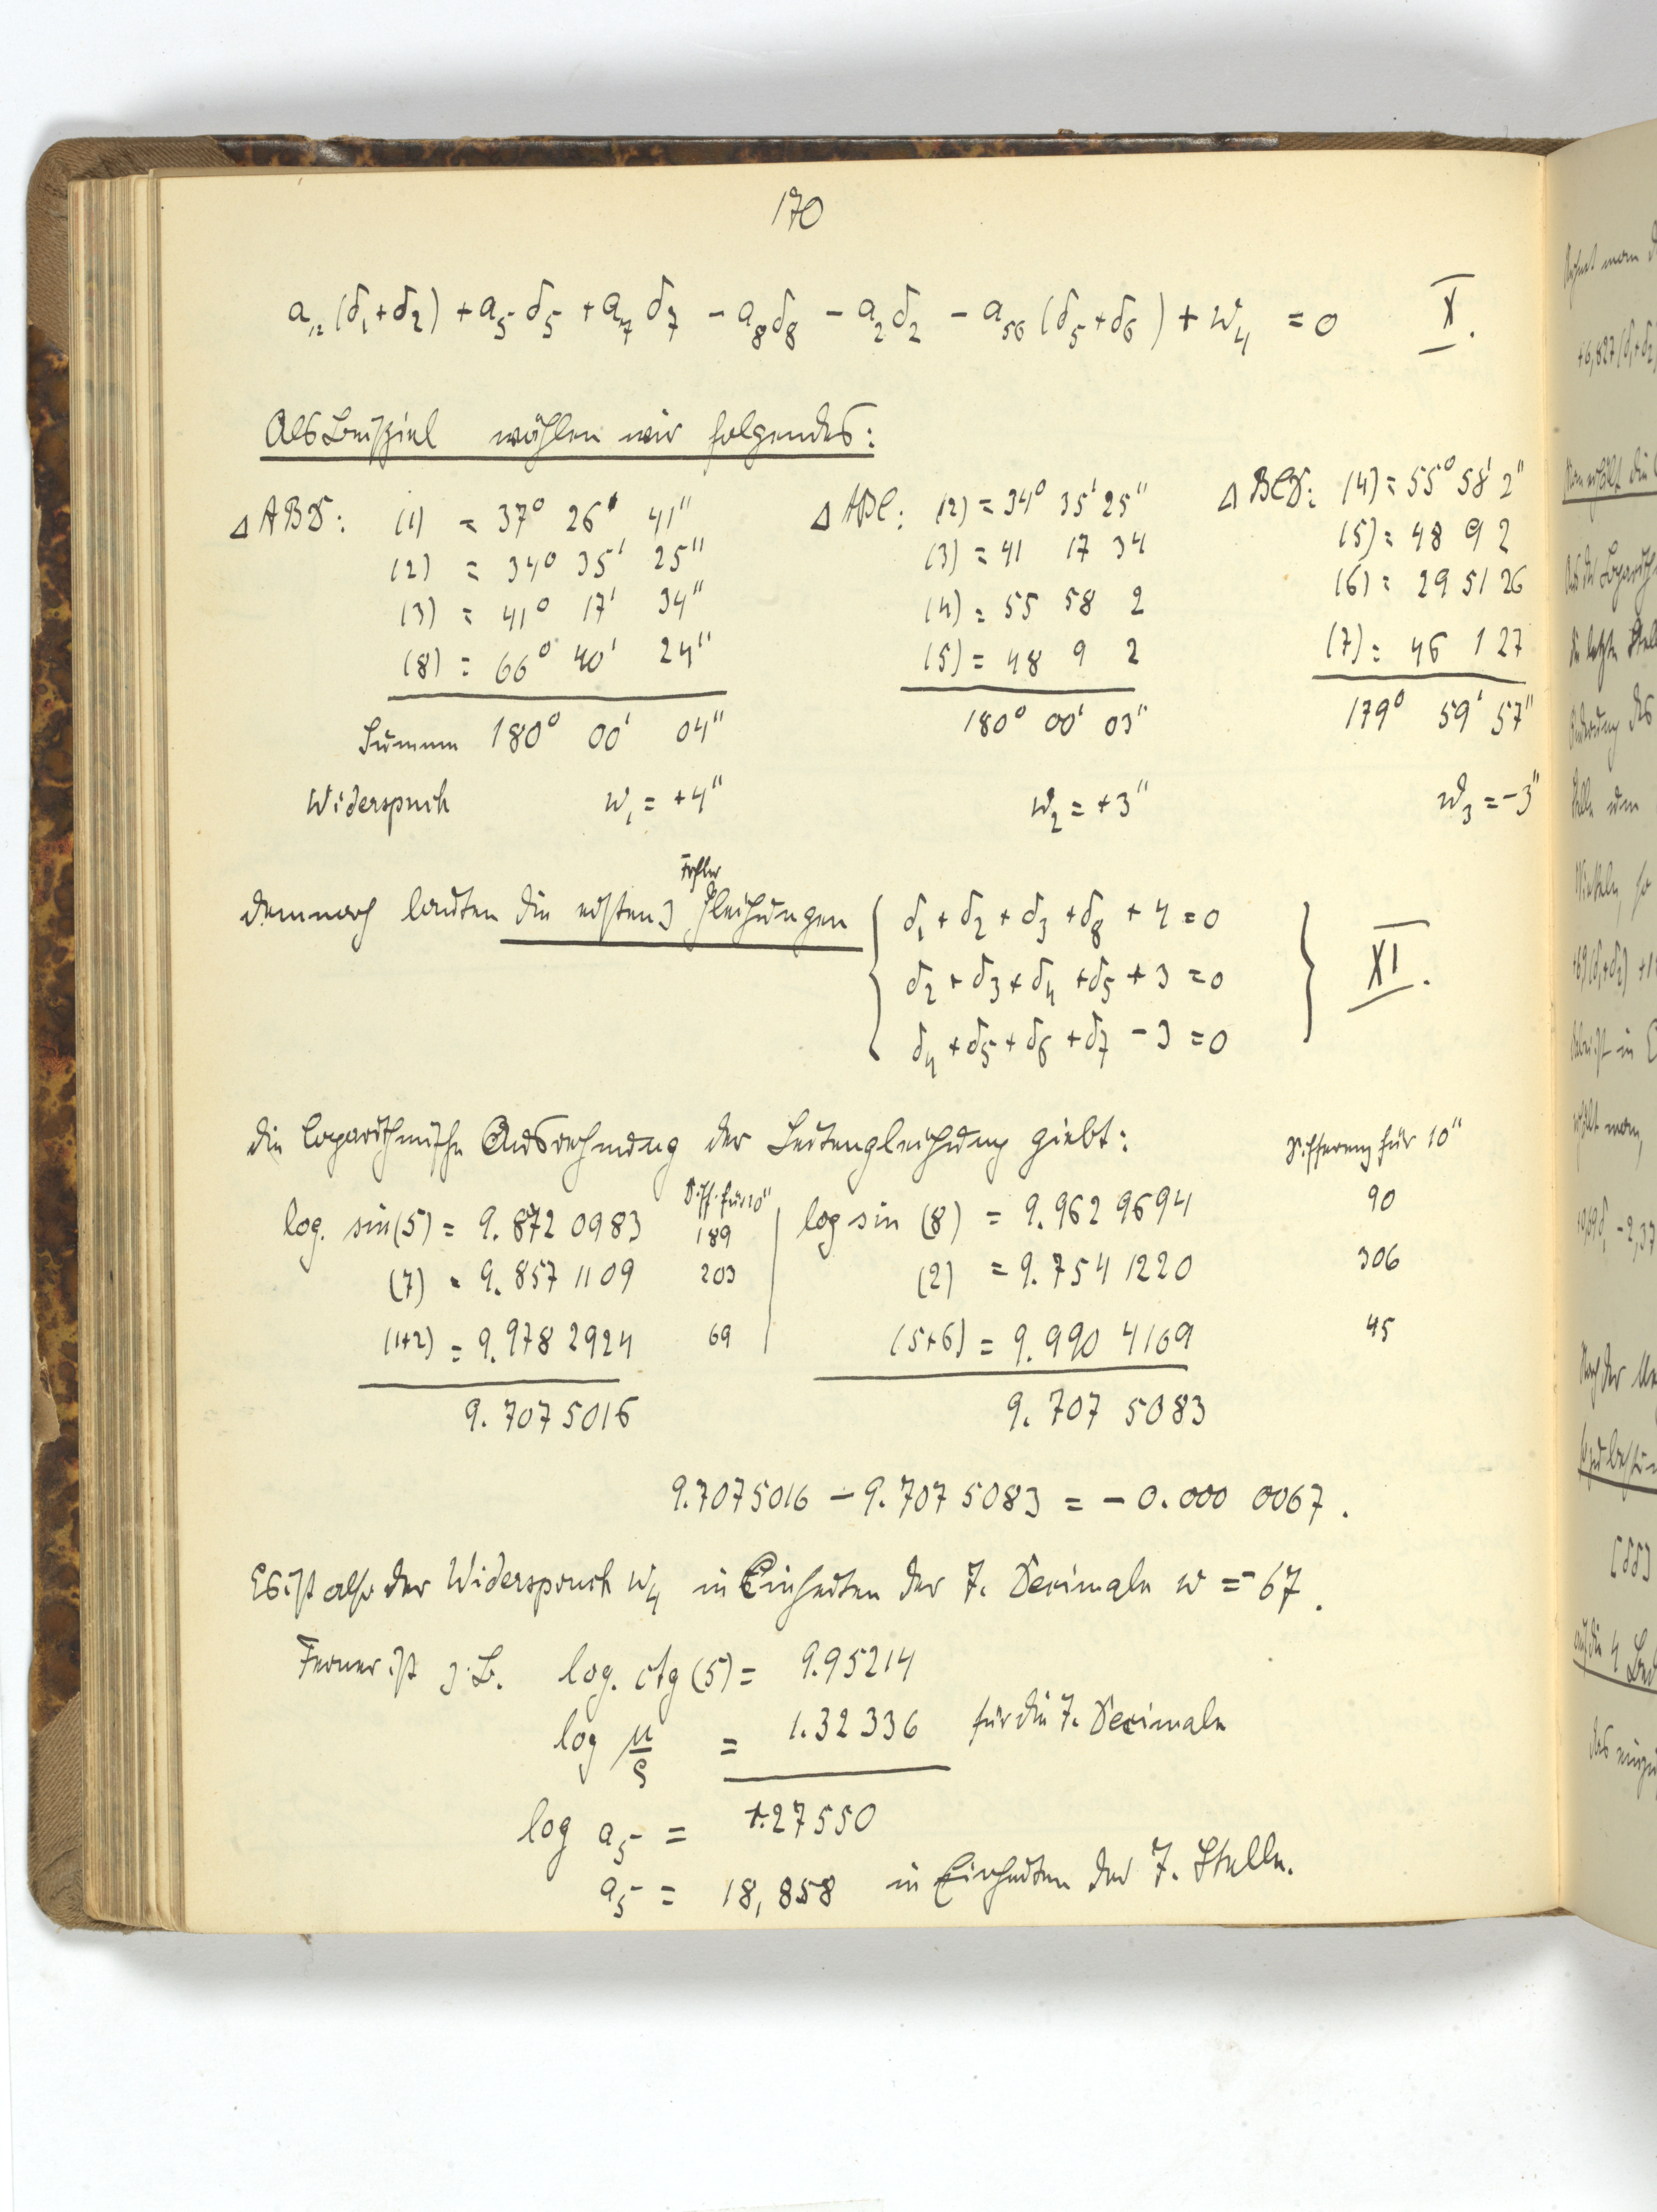 170
a₁₂ (δ₁+δ₂) + a₅ δ₅ + a₇ δ₇ − a₈ δ₈ − a₂ δ₂ − a₅₆ (δ₅+δ₆) + w₄ = 0 X.
Als Beispiel wählen wir folgendes:
△ ABD: (1) = 37° 26' 41"
(2) = 34° 35' 25"
(3) = 41° 17' 34"
(8) = 66° 40' 24"
Summen 180° 00' 04"
Widerspruch w₁ = +4"
△ ABC: (2) = 34° 35' 25"
(3) = 41 17 34
(4) = 55 58 2
(5) = 48 9 2
180° 00' 03"
w₂ = +3"
△ BCD: (4) = 55° 58' 2"
(5) = 48 9 2
(6) = 29 51 26
(7) = 46 1 27
179° 59' 57"
w₃ = −3"
Fehler
demnach lauten die ersten 3 Gleichungen { δ₁ + δ₂ + δ₃ + δ₈ + 4 = 0
δ₂ + δ₃ + δ₄ + δ₅ + 3 = 0 } XI.
δ₄ + δ₅ + δ₆ + δ₇ − 3 = 0
die logarithmische Ausrechnung der Seitengleichung giebt:
Diff. für 10"
log. sin (5) = 9.872 0983 189
(7) = 9.857 1109 203
(1+2) = 9.978 2924 69
9.707 5016
Differenz für 10"
log sin (8) = 9.962 9694 90
(2) = 9.754 1220 306
(5+6) = 9.990 4169 45
9.707 5083
9.7075016 − 9.707 5083 = − 0.000 0067.
Es ist also der Widerspruch w₄ in Einheiten der 7. Decimale w = −67.
Ferner ist z. B. log. ctg (5) = 9.95214
log μ/ρ = 1.32336 für die 7. Decimale
log a₅ = 1.27550
a₅ = 18,858 in Einheiten der 7. Stelle.